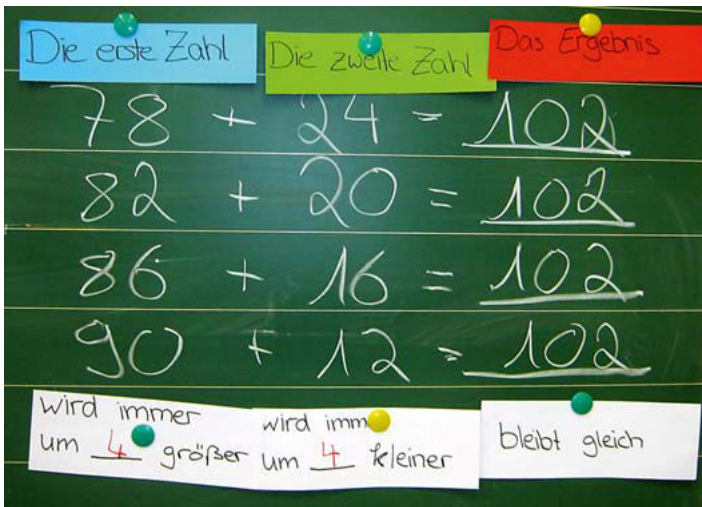 Die erste Zahl
Die zweite Zahl
Das Ergebnis
78 + 24 = 102
82 + 20 = 102
86 + 16 = 102
90 + 12 = 102
wird immer
um 4 größer
wird imm
um 4 kleiner
bleibt gleich